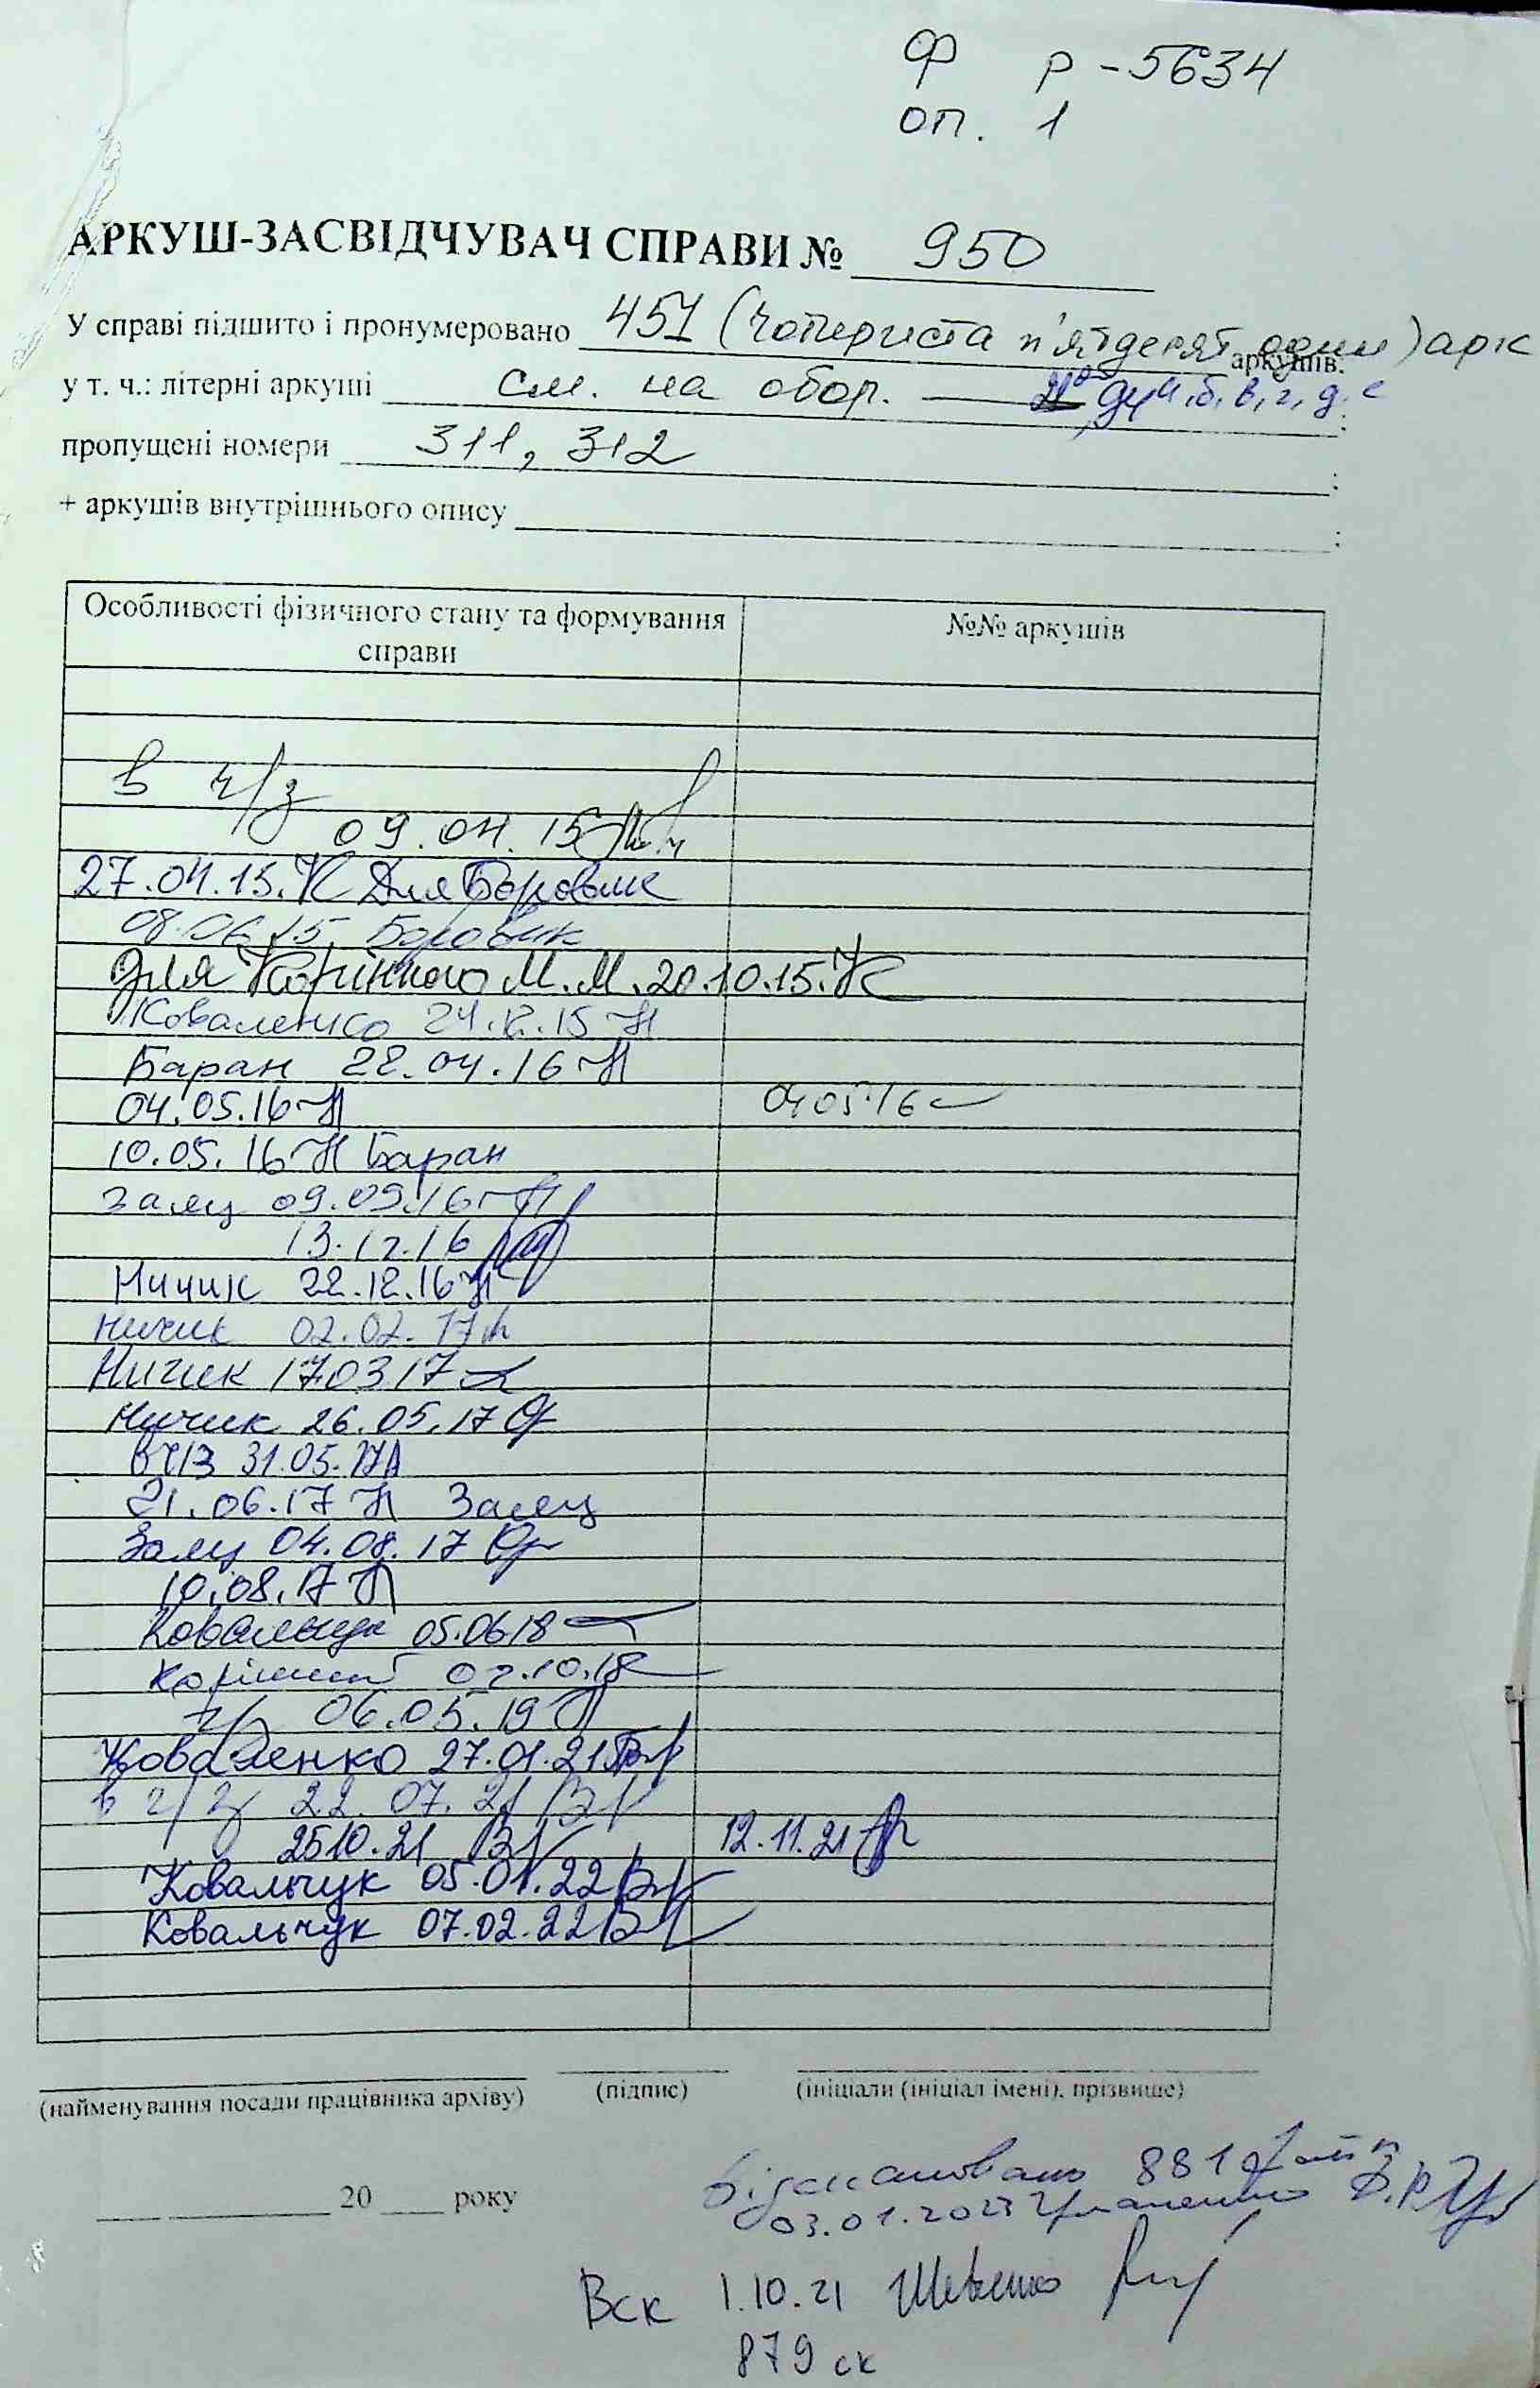 Ф Р-5634
оп. 1
АРКУШ-ЗАСВІДЧУВАЧ СПРАВИ № 950
У справі підшито і пронумеровано 451 (чотириста п'ятдесят один) арк аркушів.
у т. ч.: літерні аркуші см. на обор. а, б, в, г, д, е ;
пропущені номери 311, 312 ;
+ аркушів внутрішнього опису ;
Особливості фізичного стану та формування №№ аркушів
справи
в ч/з
09.04.15
27.04.15. Для Боровик
08.06.15. Боровик
Для Корінного М.М. 20.10.15.
Коваленко 24.12.15
Баран 22.04.16
04.05.16 04 05.16
10.05.16 Баран
Заяц 09.09.16
13.12.16
Ничик 22.12.16
Ничик 02.02.17
Ничик 17.03.17
Ничик 26.05.17
в ч/з 31.05.17
21.06.17 Заяц
Заяц 04.08.17
10.08.17
Ковальчук 05.06.18
Корінний 02.10.18
ч/з 06.05.19
Коваленко 27.01.21
в ч/з 22.07.21
25 10.21 12.11.21
Ковальчук 05.01.22
Ковальчук 07.02.22
(найменування посади працівника архіву) (підпис) (ініціали (ініціал імені), прізвище)
20 року
Відскановано 881
03.01.2023
Вск 1.10.21
879 ск